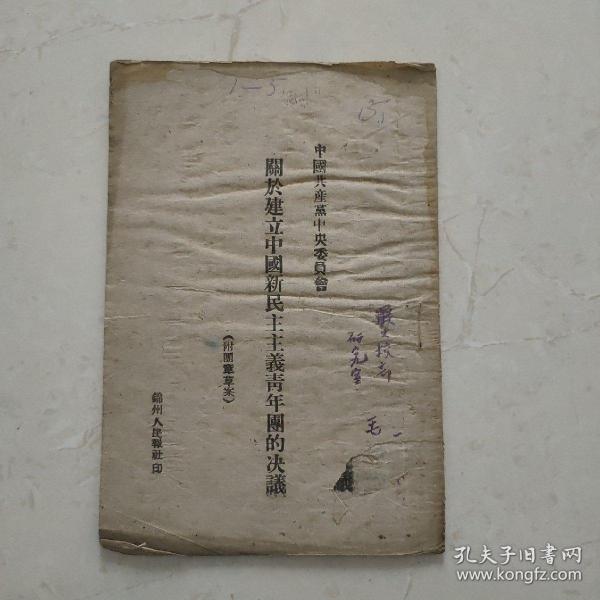 1—5
中國共產黨中央委員會
關於建立中國新民主主義青年團的决議
（附團章草案）
錦州人民報社印
研究室
毛
孔夫子旧书网
www.kongfz.com